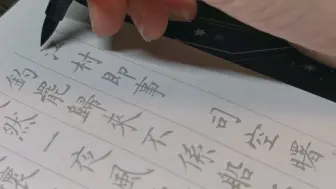 村即事 司空曙
釣罷歸來不係船
然一夜風